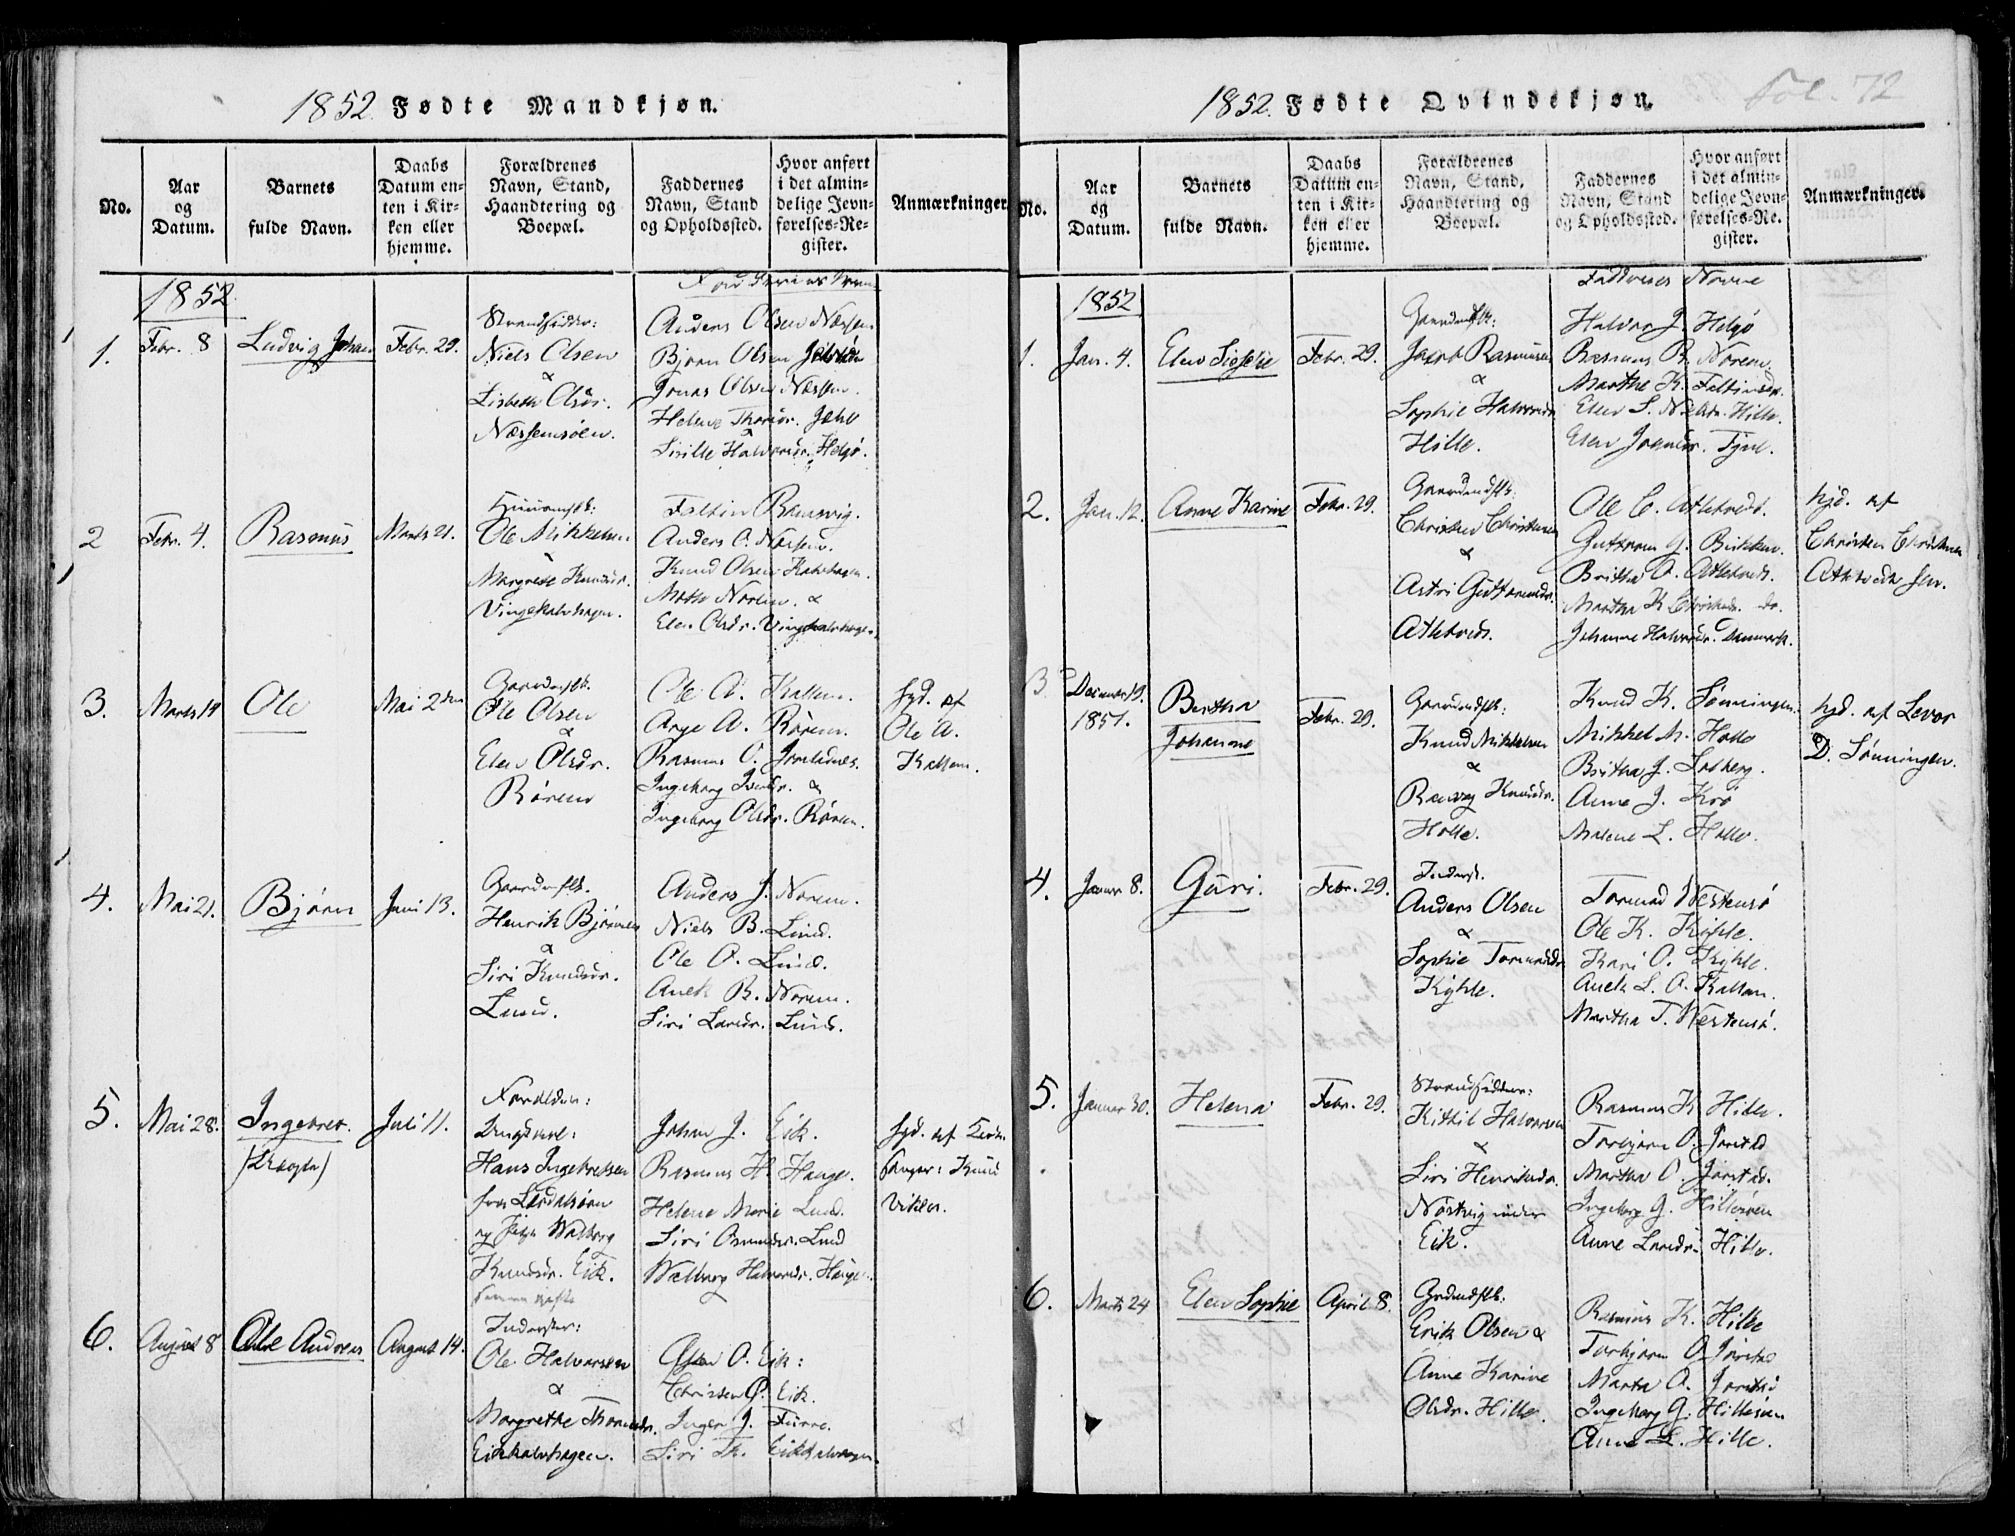 1852. Fødte Mandkjøn.
No.
Aar og Datum.
Barnets fulde Navn.
Daabs Datum enten i Kirken eller hjemme.
Forældrenes Navn, Stand, Haandtering og Boepæl.
Faddernes Navn, Stand og Opholdssted.
Hvor anført i det almindelige Jevnførelses-Register.
Anmærkninger.
1852
1.
Febr. 8
Ludvig Johan
Febr. 29.
Strandsidder:
Niels Olsen
&
Lisbeth Olsdr.
Næssensøen.
Anders Olsen Næssen
Bjørn Olsen
Jonas Olsen Næssen.
Helene Thorsdr.
Sisille Halvorsdr. Helgø.
2
Febr. 4.
Rasmus
Marts 21.
Ole Mikkelsen
Margrete Knudsdr.
Vingekalvhagen.
Feltin Ramsvig.
Anders O. Næssen.
Knud Olsen Kalvhagen.
Norem. &
Elen Olsdr. Vingekalvhagen.
3.
Marts 19
Ole
Mai 2den
Gaardmflk.
Ole Olsen
&
Elen Olsdr.
Røren
Ole A. Kallem.
Aage A. Røren.
Rasmus O.
Ingeborg &
Ingeborg Olsdr. Røren.
Hjd. af
Ole A.
Kallem.
4.
Mai 21.
Bjørn
Juni 13.
Gaardmflk.
Henrik Bjørnsen
&
Siri Knudsdr.
Lund.
Anders J. Norem.
Niels B. Lund.
Ole O. Lund.
Anek B. Norem.
Siri Larsdr. Lund.
5.
Mai 28.
Ingebret
(Uægte)
Juli 11.
Forældre:
Ungkarl:
Hans Ingebretsen
fra Lærdalsøren
og Pige Walborg
Knudsdr. Eik.
Johan J. Eik.
Rasmus H. Hauge.
Helene Marie Lund.
Siri Osmundsdr. Lund
Walborg Halvorsdr. Hauge.
Hjd. af Kirke-
sanger: Knud
Vikler.
6.
August 8
Ole Andreas
August 14.
Inderster:
Ole Halvorsen
&
Margrethe Thorsdr.
Eikekalvhagen.
O. Eik:
Christen Ø. Eik.
Inger J. Furre.
Siri Th. Eikekalvhagen.
1852. Fødte Qvindekjøn.
Fol. 72
No.
Aar og Datum.
Barnets fulde Navn.
Daabs Datum enten i Kirken eller hjemme.
Forældrenes Navn, Stand, Haandtering og Boepæl.
Faddernes Navn, Stand og Opholdssted.
Hvor anført i det almindelige Jevnførelses-Register.
Anmærkninger.
1852
Faddernes Navne
1.
Jan. 4.
Elen Sissele
Febr. 29.
Gaardmflk:
Jacob Rasmussen
&
Sophie Halvorsdr.
Hille.
Halvor J. Helgø
Rasmus R. Norem.
Marthe K.
Elen S. Nielsdr. Hille.
Elen
2.
Jan. 12.
Anne Karine
Febr. 29.
Gaardmflk:
Christen Christensen
&
Astri Guttormsdr.
Atletveds.
Ole C. Atletvedt.
Guttorm G. Birkeland.
Britha O. Atletveds.
Martha K. do.
Johanne Halvorsdr. Danmark.
Hjd. af
Christen Christensen
Atletvedt Sen.
3.
December 19.
1851.
Bertha
Johanne
Febr. 29.
Gaardmflk:
Knud Mikkelsen
&
Ranveg Knudsdr.
Holle.
Knud K. Sønningen.
Mikkel M. Holle
Britha J. Solberg.
Anne J. Krø
Malene L. Holle.
Hjd. af Levor
D. Sønningen.
4.
Januar 8.
Guri.
Febr. 29.
Inderst.
Anders Olsen
&
Sophie Tormodsdr.
Kyhle.
Tormod Vestersø
Ole K. Kyhle.
Kari O. Kyhle.
Anek L. O. Kallem.
Martha T. Vestersø.
5.
Januar 30.
Helena
Febr. 29.
Strandsidder:
Kittil Halvorsen
&
Siri Henriksdr.
Nordvig under
Eik.
Rasmus K. Hille.
Torbjørn O. Jørstad
Martha O. Jørstad.
Ingeborg G. Hillesøen
Anne Larsdr. Hille.
6.
Marts 24
Elen Sophie
April 8.
Grdmdflk:
Erik Olsen &
Anne Karine
Olsdr. Hille.
Rasmus K. Hille
Torbjørn O. Jørstad
Marta O. Jørstad
Ingeborg G. Hillesøen
Anne L. Hille.